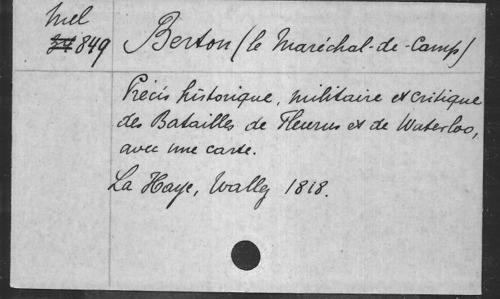 Mel
849 Berton (le Maréchal-de-Camp)
Précis historique, militaire et critique
des Batailles de Fleurus et de Waterloo,
avec une carte.
La Haye, Wallez 1818.